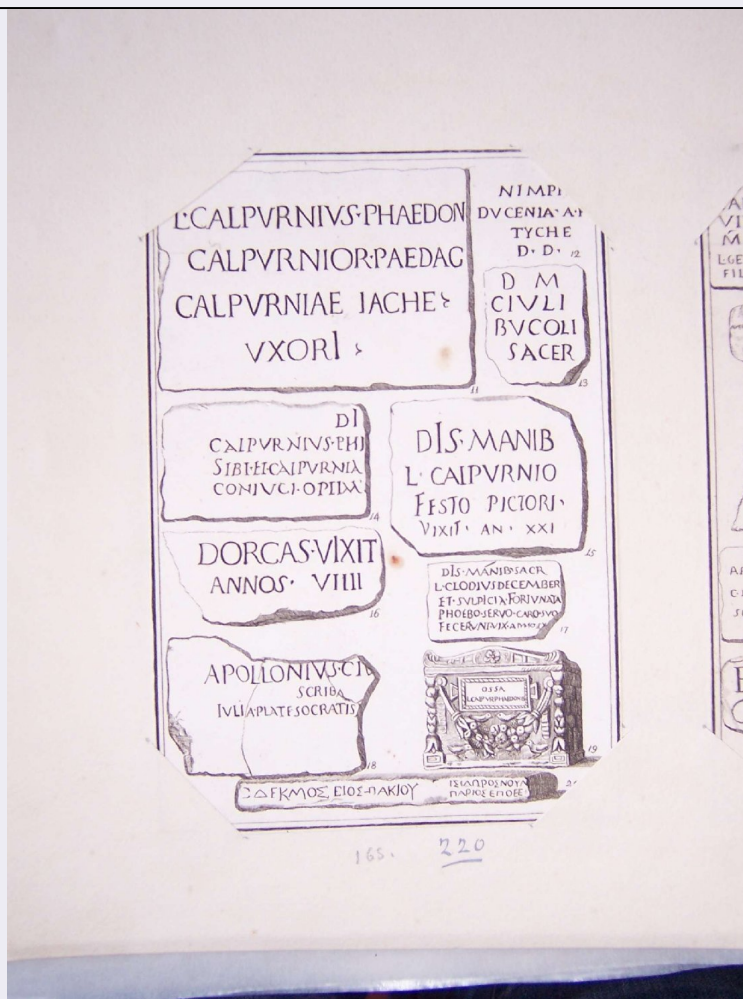 L·CALPVRNIVS·PHAEDON
CALPVRNIOR·PAEDAG
CALPVRNIAE IACHE
VXORI
11
NIMPI
DVCENIA·A·
TYCHE
D·D·
12
D M
CIVLI
BVCOLI
SACER
13
DI
CALPVRNIVS·PHI
SIBI·ET·CALPVRNIA
CONIVCI·OPTIM
14
DIS·MANIB
L·CAIPVRNIO
FESTO PICTORI·
VIXIT· AN· XXI
15
DORCAS·VIXIT
ANNOS· VIIII
16
DIS·MANIB·SACR
L·CLODIVS·DECEMBER
ET·SVLPICIA·FORTVNATA
PHOEBO·SERVO·CARO·SVO
FECERVNT·VIX·
17
APOLLONIVS·CIV
SCRIBA
IVLIA·PLATESOCRATIS
18
OSSA
L·CALPVRPHAEDONIS
19
ΕΙΟΣ·ΠΑΚΙΟΥ
ΠΑΡΙΟΣ ΕΠΟΕΙ
165.
220